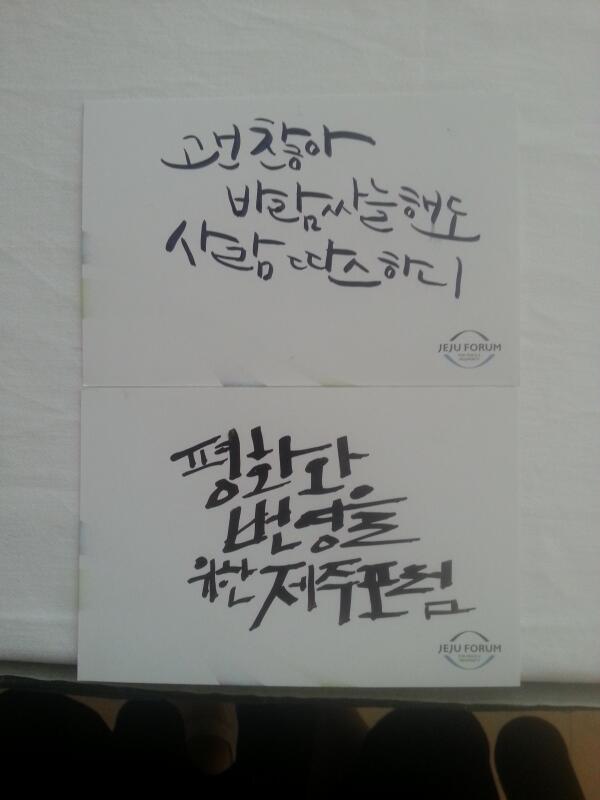 괜찮아
바람 싸늘해도
사람 따스하니
JEJU FORUM
평화와
번영을
위한 제주포럼
JEJU FORUM